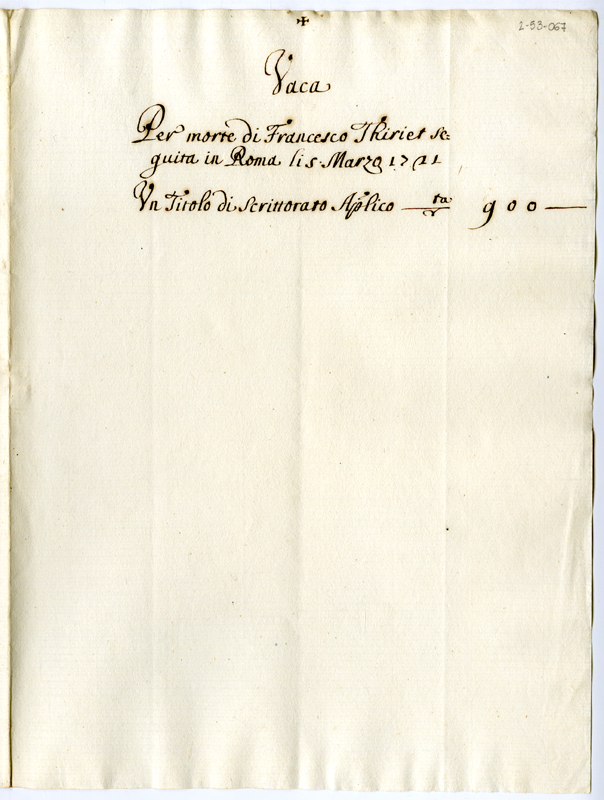 ✠
2-53-067
Vaca
Per morte di Francesco Thiriet se=
guita in Roma li 5 Marzo 1721
Vn Titolo di Scrittorato Aplico — ta 900 —